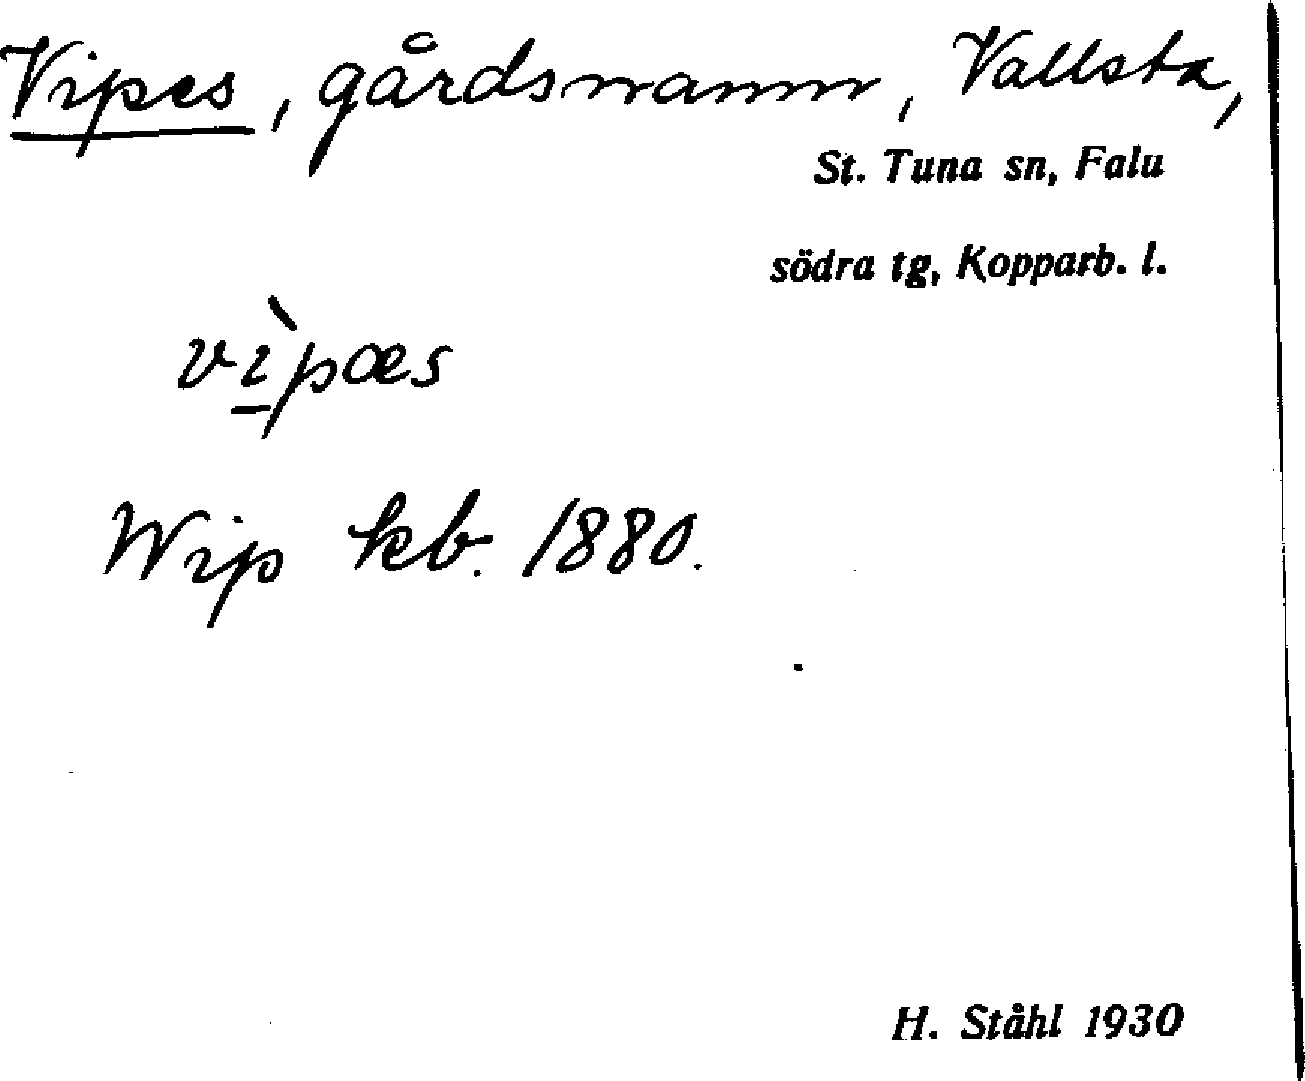 Vipes, gårdsnamn, Vallsta,
St. Tuna sn, Falu
södra tg, Kopparb. l.
vì̱pæs
Wip kb. 1880.
H. Ståhl 1930